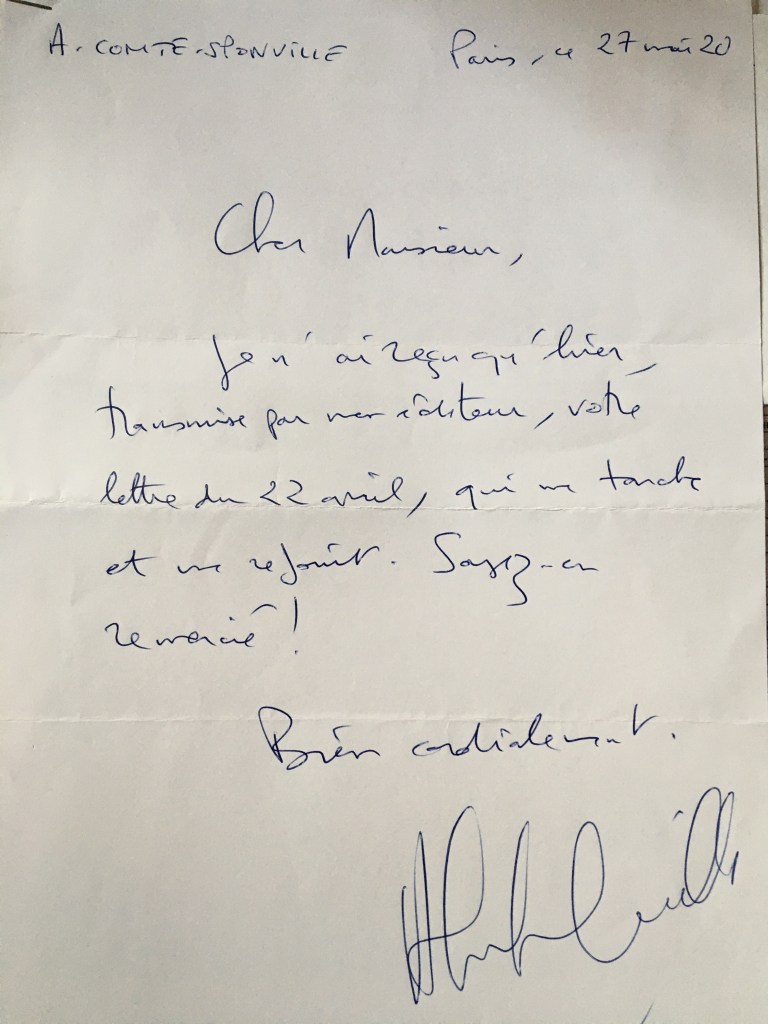 A. COMTE-SPONVILLE Paris, ce 27 mai 20
Cher Monsieur,
Je n'ai reçu qu'hier,
transmise par mon éditeur, votre
lettre du 22 avril, qui me touche
et me réjouit. Soyez-en
remercié !
Bien cordialement.